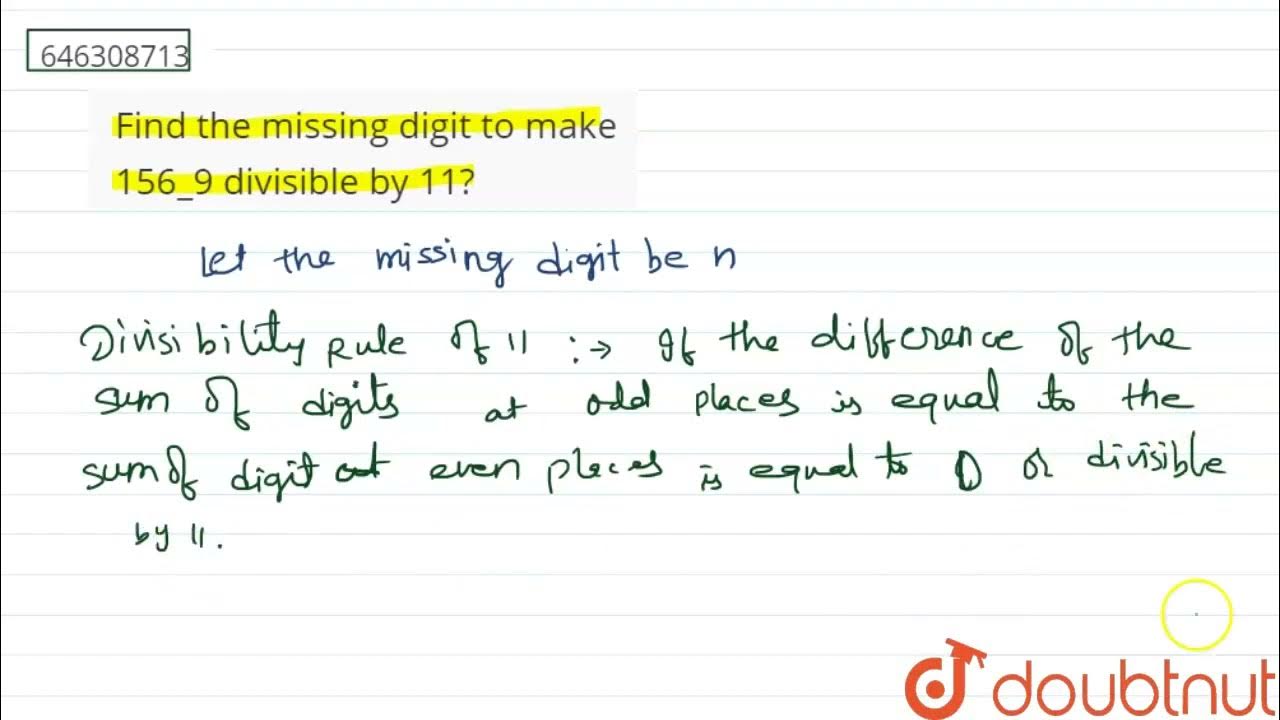 646308713
Find the missing digit to make
156_9 divisible by 11?
Let the missing digit be n
Divisibility rule of 11 :→ If the difference of the
sum of digits at odd places is equal to the
sum of digit at even places is equal to 0 or divisible
by 11.
doubtnut